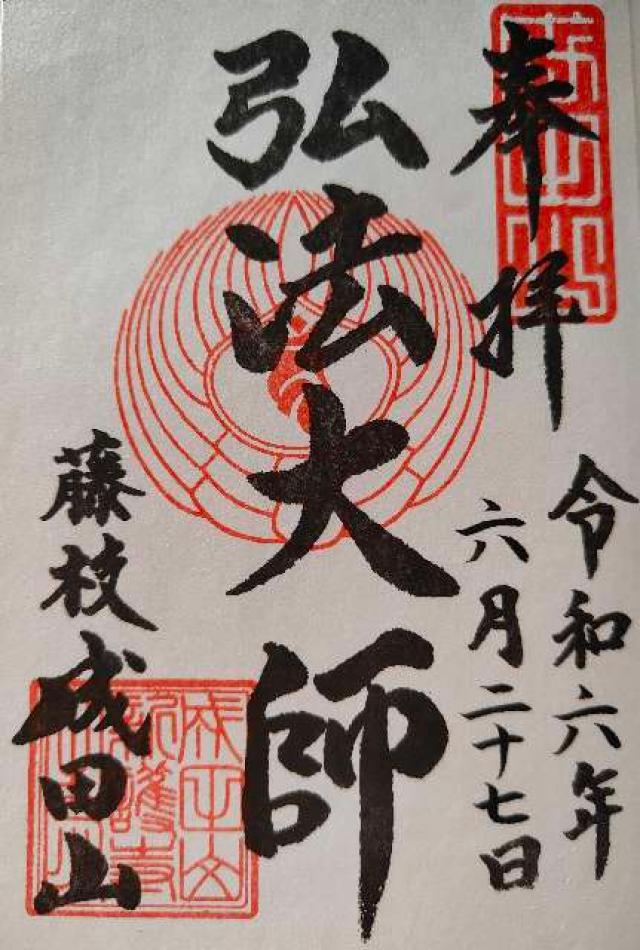 奉拝
令和六年
六月二十七日
弘法大師
藤枝成田山